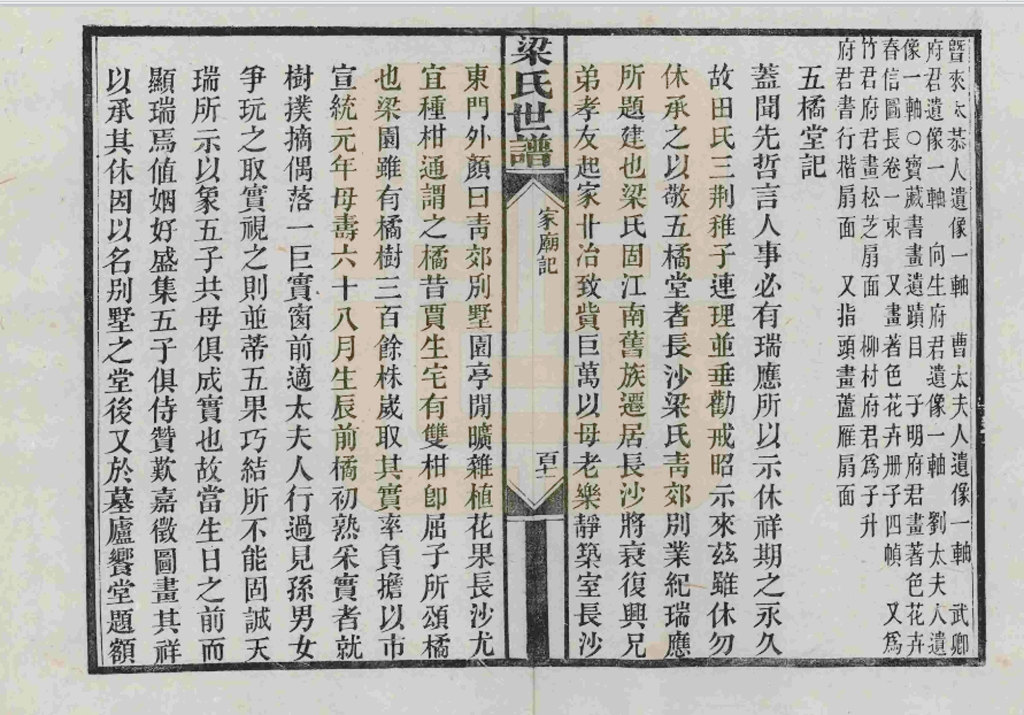 暨來太恭人遺像一軸　曹太夫人遺像一軸　武卿
府君遺像一軸　向生府君遺像一軸　劉太夫人遺
像一軸○寶藏書畫遺蹟目　子明府君畫著色花卉
春信圖長卷一束　又畫著色花卉册子四幀　又爲
竹君府君畫松芝扇面　柳村府君爲子升
府君書行楷扇面　又指頭畫蘆雁扇面
五橘堂記
蓋聞先哲言人事必有瑞應所以示休祥期之永久
故田氏三荆稚子連理並垂勸戒昭示來茲雖休勿
休承之以敬五橘堂者長沙梁氏靑郊別業紀瑞應
所題建也梁氏固江南舊族遷居長沙將衰復興兄
弟孝友起家卄冶致貲巨萬以母老樂靜築室長沙
梁氏世譜
家廟記
百十一
東門外顏曰靑郊別墅園亭閒曠雜植花果長沙尤
宜種柑通謂之橘昔賈生宅有雙柑卽屈子所頌橘
也梁園雖有橘樹三百餘株歲取其實率負擔以市
宣統元年母壽六十八月生辰前橘初熟采實者就
樹撲摘偶落一巨實窗前適太夫人行過見孫男女
爭玩之取實視之則並蒂五果巧結所不能固誠天
瑞所示以象五子共母俱成實也故當生日之前而
顯瑞焉値姻好盛集五子俱侍贊歎嘉徵圖畫其祥
以承其休因以名別墅之堂後又於墓廬饗堂題額